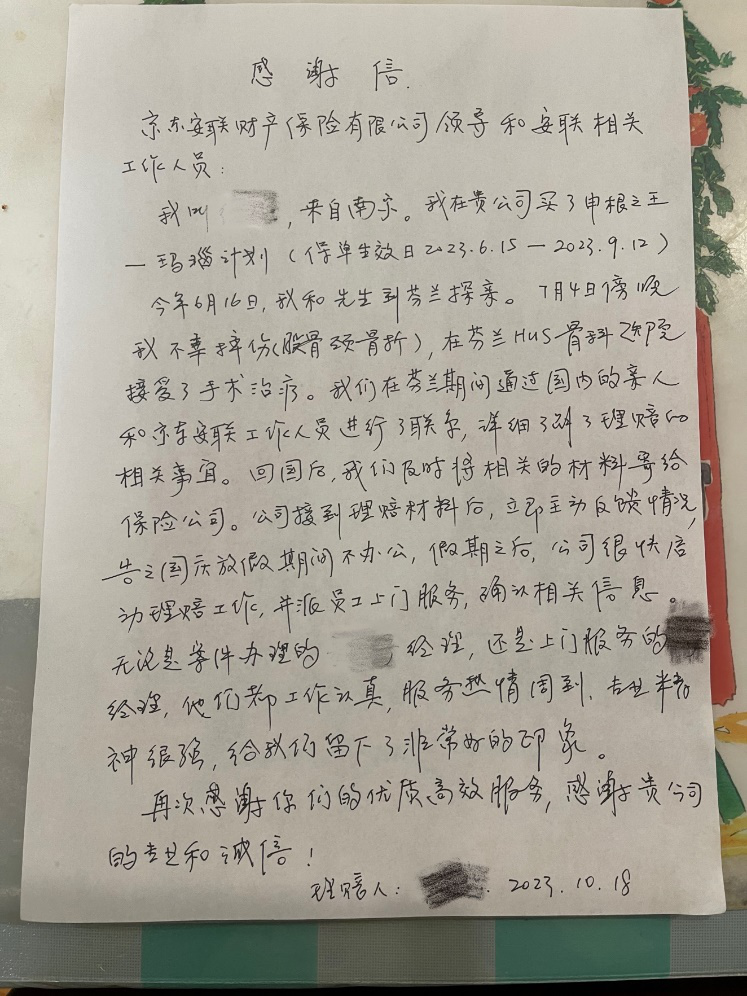 感谢信.
京东安联财产保险有限公司领导和安联相关
工作人员：
我叫，来自南京。我在贵公司买了申根之王
—玛瑙计划（保单生效日2023.6.15—2023.9.12）
今年6月16日，我和先生到芬兰探亲。7月4日傍晚
我不幸摔伤（股骨颈骨折），在芬兰HUS骨科医院
接受了手术治疗。我们在芬兰期间通过国内的亲人
和京东安联工作人员进行了联系，详细了解了理赔的
相关事宜。回国后，我们及时将相关的材料寄给
保险公司。公司接到理赔材料后，立即主动反馈情况，
告之国庆放假期间不办公，假期之后，公司很快启
动理赔工作，并派员工上门服务，确认相关信息。
无论是案件办理的经理，还是上门服务的
经理，他们都工作认真，服务热情周到、专业精
神很强，给我们留下了非常好的印象。
再次感谢你们的优质高效服务，感谢贵公司
的专业和诚信！
理赔人：2023.10.18